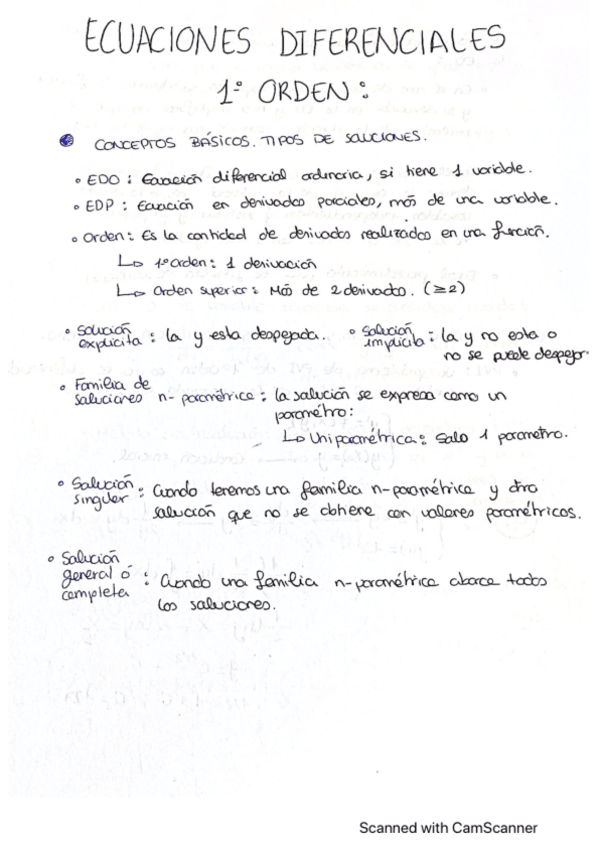 ECUACIONES DIFERENCIALES
1º ORDEN:
CONCEPTOS BÁSICOS. TIPOS DE SOLUCIONES.
• EDO : Ecuación diferencial ordinaria, si tiene 1 variable.
• EDP : Ecuación en derivadas parciales, más de una variable.
• Orden: Es la cantidad de derivadas realizadas en una función.
↳ 1º orden: 1 derivación
↳ Orden superior: Más de 2 derivada. (≥2)
• Solución explícita : la y esta despejada.
• Solución implícita : la y no esta o no se puede despejar
• Familia de
soluciones n-paramétrica : la solución se expresa como un
parámetro:
↳ Uniparamétrica: Solo 1 parametro.
• Solución
singular : Cuando tenemos una familia n-paramétrica y otra
solución que no se obtiene con valores paramétricos.
• Solución
general o
completa : Cuando una familia n-paramétrica abarca todas
las soluciones.
Scanned with CamScanner